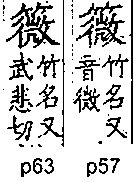 薇
竹名又
武悲切
p63
薇
竹名又
音微
p57